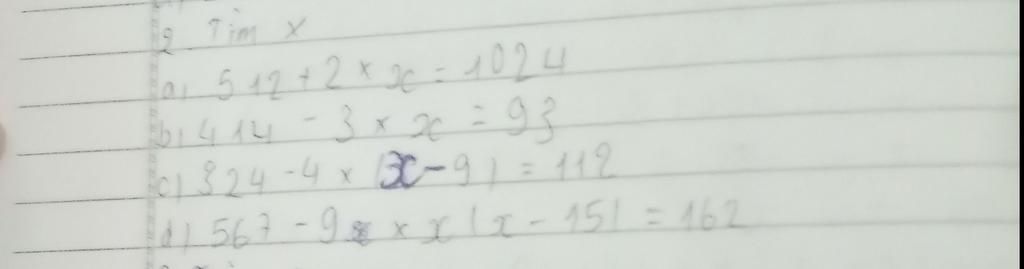 2 Tìm x
a) 512 + 2 × x = 1024
b) 414 - 3 × x = 93
c) 324 - 4 × (x - 9) = 112
d) 567 - 9 × x (x - 15) = 162